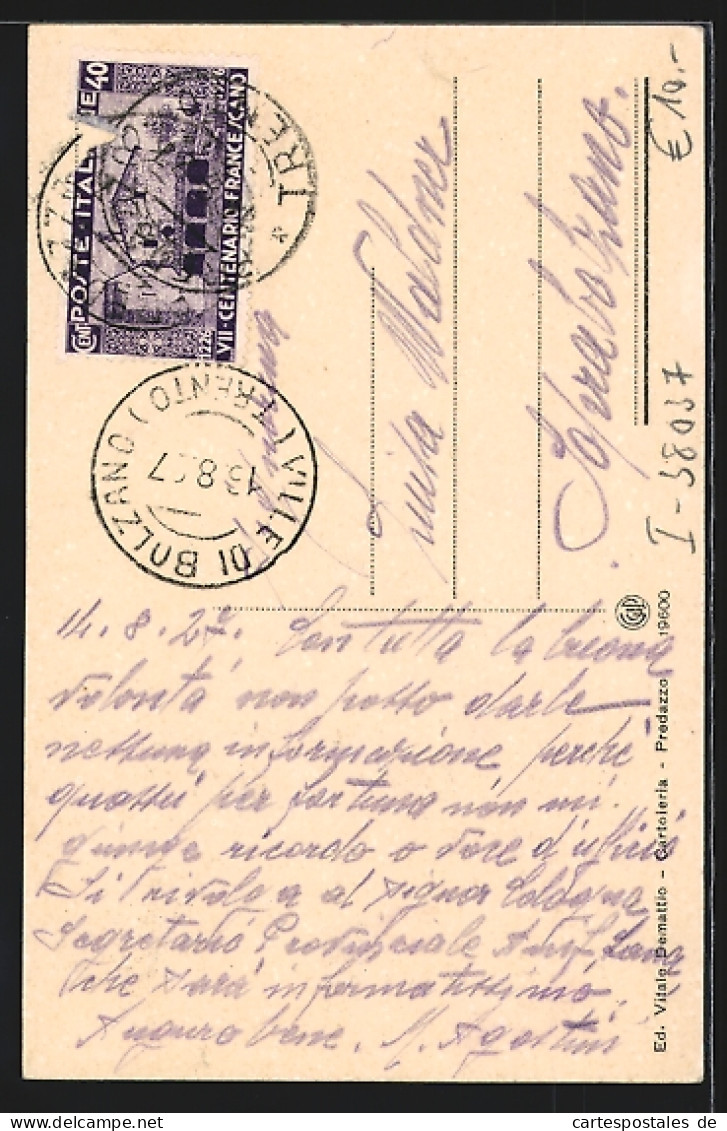 POSTE ITALIANE
CENT 40
VII·CENTENARIO FRANCESCANO
1226
1226
* TRENTO
VILLE DI BOLZANO (TRENTO)
13 8 27
Luisa Waldner
Soprabolzano.
€ 10.-
I-38037
14. 8. 27. Con tutta la buona
volontà non posso darle
nessuna informazione perché
quassù per fortuna non mi
giunge ricordo o voce d'uffici
Si rivolga al signor Cologna
Segretario Provinciale
che sarà informatissimo.
Auguro bene. M. Agostini
Ed. Vitale Demattio - Cartoleria - Predazzo 19600
cartespostales de